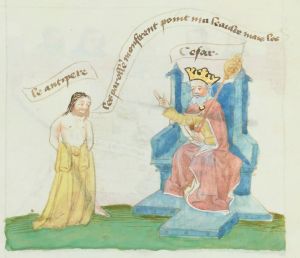 le antipere
les parolle monstrent point ma leaulte mais les
Cesar